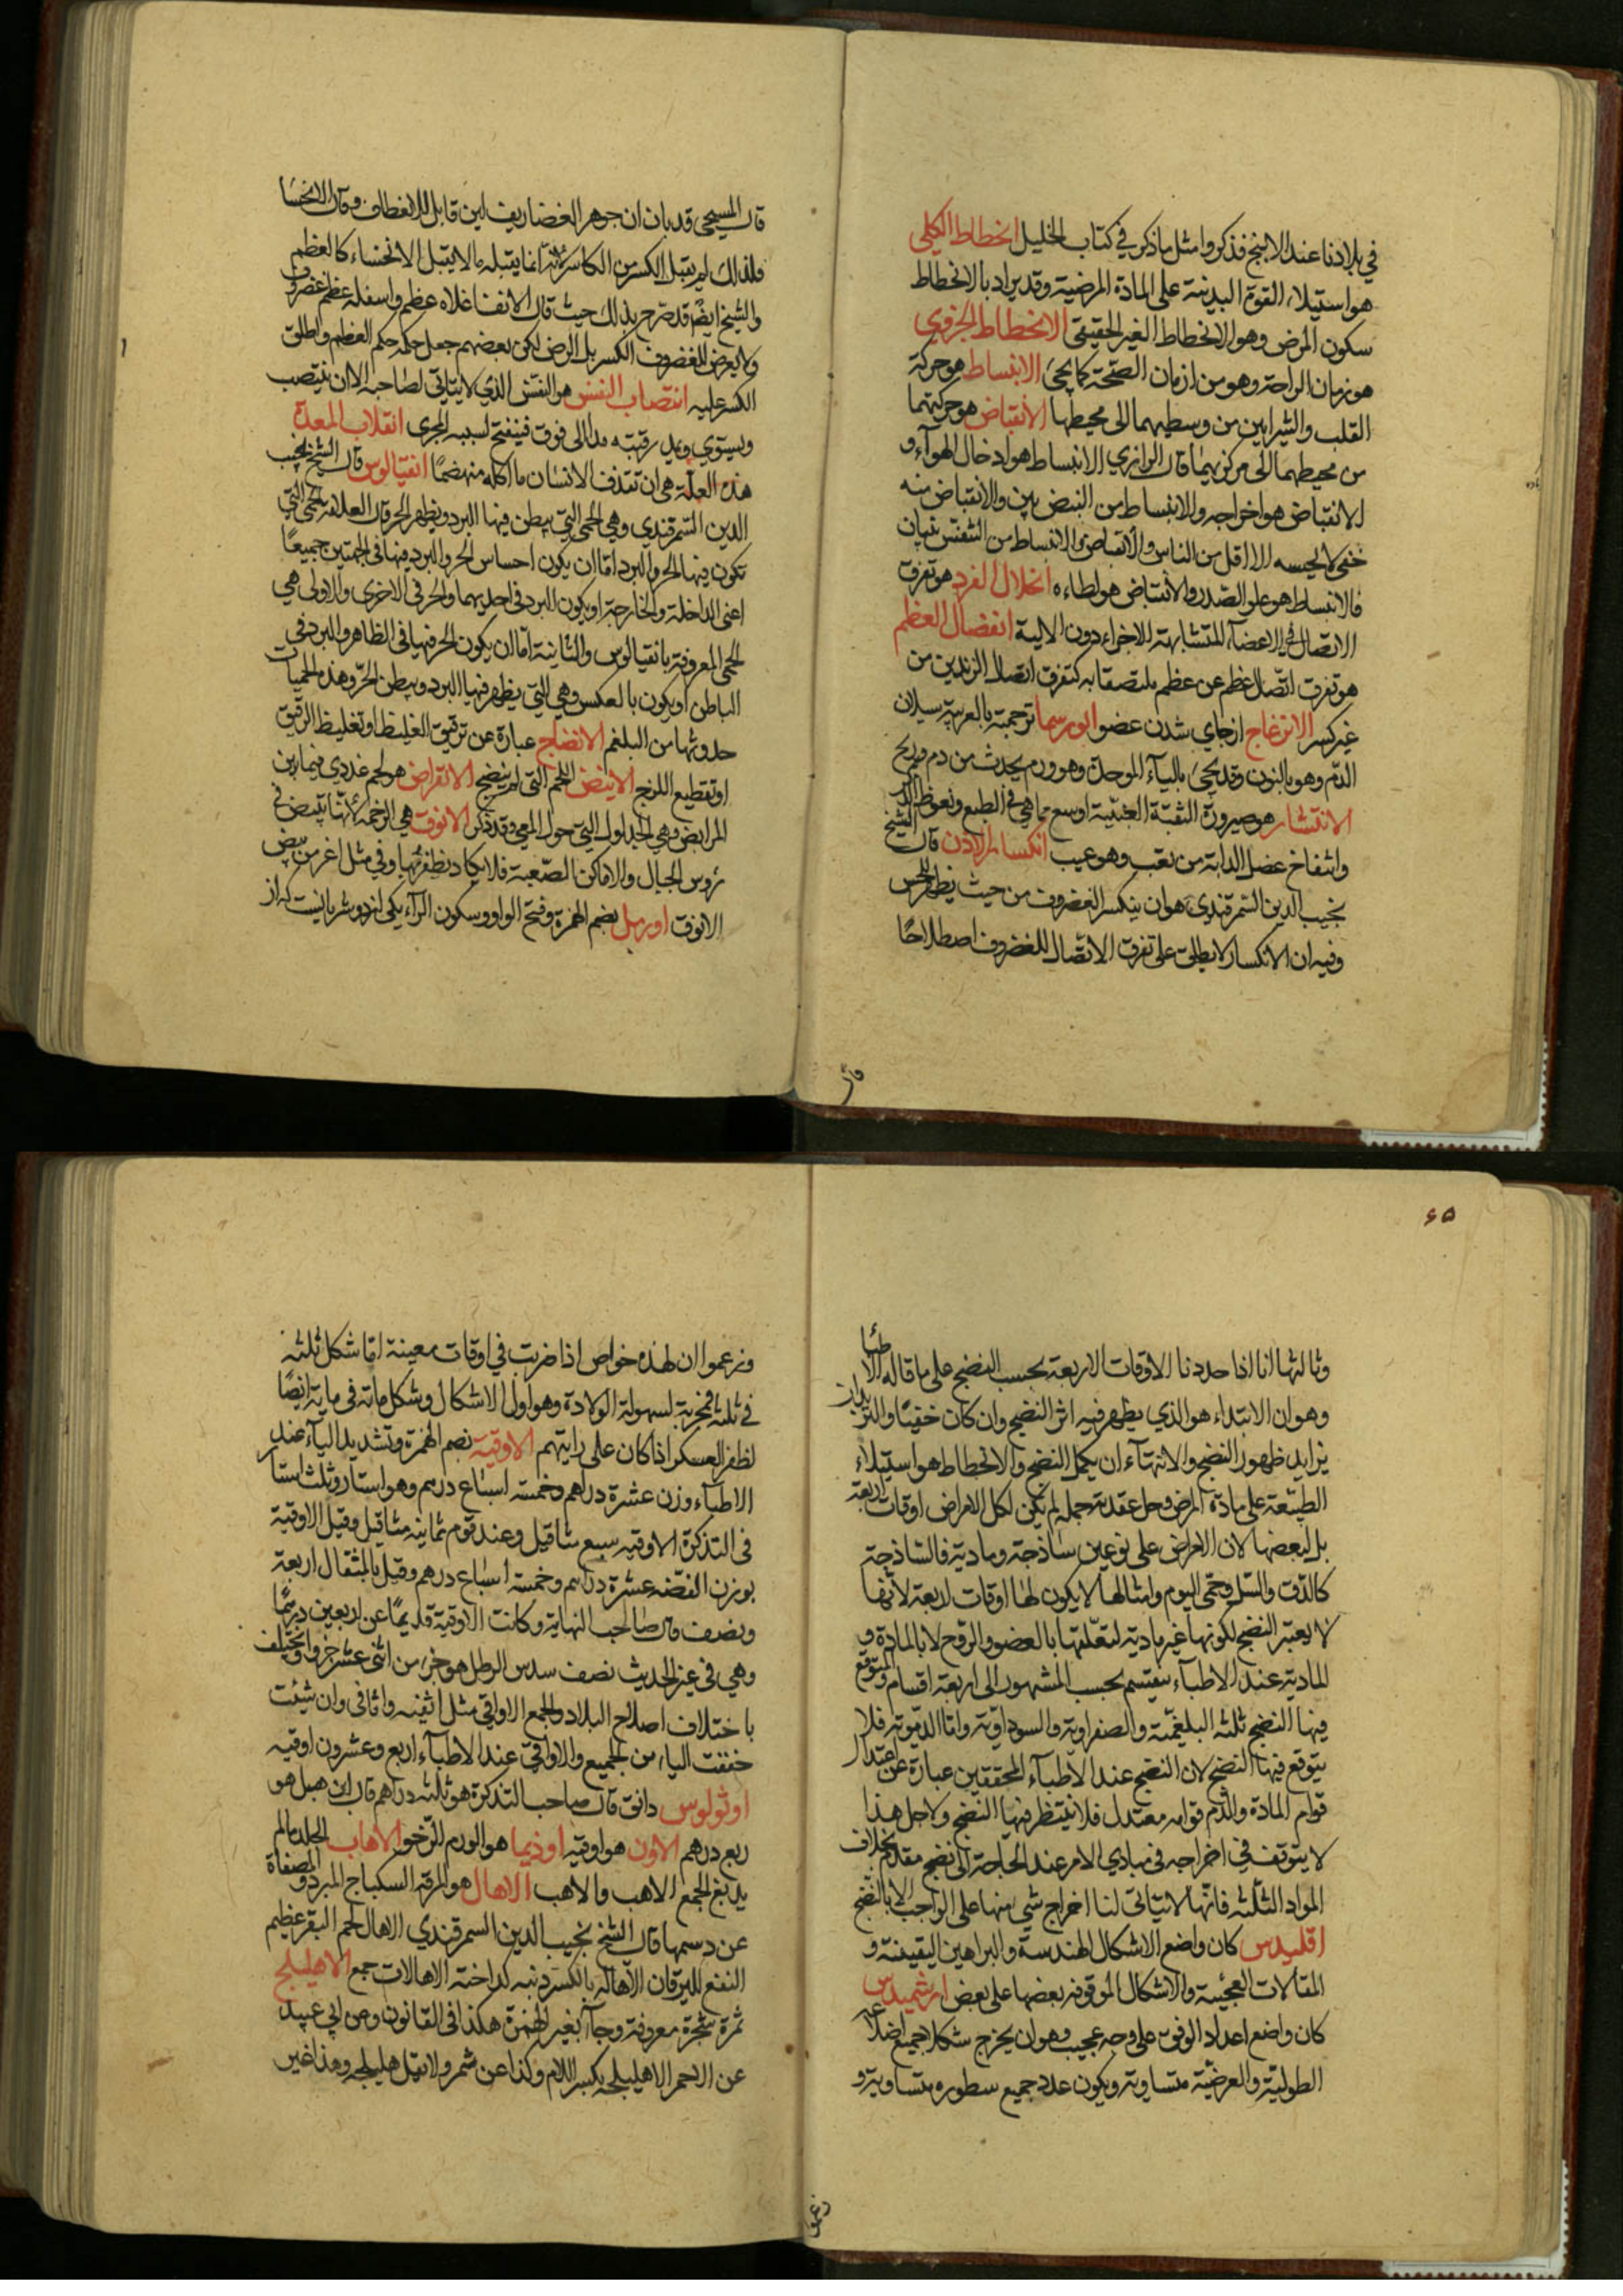 في بلادنا عند الابنج فذكروا مثل ما ذكر في كتاب الخليل انحطاط الكلي
هو استيلاء القوة البدنية على المادة المرضية وقد يراد بالانحطاط
سكون المرض وهو الانحطاط الغير الحقيقي الانحطاط الجزوي
هو زمان الراحة وهو من ازمان الصحة كما يجئ الانبساط هو حركة
القلب والشرايين من وسطيهما الى محيطها الانقباض هو حركتهما
من محيطهما الى مركزيهما قال الرازي الانبساط هو ادخال الهوآء و
الانقباض هو اخراجه والانبساط من النبض بين والانقباض منه
خفي لا يحسه الا اقل من الناس والانقباض والانبساط من التنفس بينان
فالانبساط هو علو الصدر والانقباض هو لطاءه انحلال الفرد هو تفرق
الاتصال في الاعضآء المتشابهة الاجزاء دون الالية انفصال العظم
هو تفرق اتصال عظم عن عظم ملتصقا به كتفرق اتصال الزندين من
غير كسر الانزعاج از جاي شدن عضو انورسما ترجمته بالعربية سيلان
الدم وهو بالنون وقد يجئ باليآء الموحدة وهو ورم يحدث من دم وريح
الانتشار هو صيرورة الثقبة العنبية اوسع مما هي في الطبع ونعوظ الذكر
وانتفاخ عضل الدابة من تعب وهو عيب انكسار الاذن قال الشيخ
نجيب الدين السمرقندي هو ان ينكسر الغضروف من حيث يظهر للحس
وفيه ان الانكسار لا يطلق على تفرق الاتصال للغضروف اصطلاحًا
قال
قال المسيحي قد بان ان جوهر الغضاريف لين قابل للانعطاف وقال الانحنا
ولذلك لم يقبل الكسر من الكاسر لانه انما يقبله ما لا يقبل الانحناء كالعظم
والشيخ ايضًا قد صرح بذلك حيث قال الانف اعلاه عظم واسفله غضروف
ولا يعرض للغضروف الكسر بل الرض لكن بعضهم جعل حكمه حكم العظم واطلق
الكسر عليه انتصاب النفس هو النفس الذي لا يتاتى لصاحبه الا ان ينتصب
ويستوي ويمد رقبته مدا الى فوق فينفتح بسببه المجرى انقلاب المعدة
هذه العلة هي ان تقذف الانسان ما اكله منهضمًا انفيالوس قال الشيخ نجيب
الدين السمرقندي وهي الحمى التي يبطن فيها البرد ويظهر الحر قال العلامة الحمى التي
تكون فيها الحر والبرد اما ان يكون احساس الحر والبرد فيها في الجهتين جميعًا
اعني الداخلة والخارجة او يكون البرد في احديهما والحر في الاخرى والاولى هي
الحمى المعروفة بانفيالوس والثانية اما ان يكون الحر فيها في الظاهر والبرد في
الباطن او يكون بالعكس وهي التي يظهر فيها البرد ويبطن الحر وهذه الحميات
حدوثها من البلغم الانضاج عبارة عن ترقيق الغليظ او تغليظ الرقيق
او تقطيع اللزج الانيض اللحم التي لم ينضج الانقراض هو لحم غددي فيما بين
المرابض وهي الجداول التي حول المعي وقد ذكر الانوق هي الرخمة لانها تبيض في
رؤس الجبال والاماكن الصعبة فلا يكاد يظفر بها وفي مثل اعز من بيض
الانوق اوربل بضم الهمزة وفتح الواو وسكون الرآء يكى از دو شريانيست كه از
٤٥
وثالثها انا اذا حددنا الاوقات الاربعة بحسب النضج على ما قاله الاطباء
وهو ان الابتداء هو الذي يظهر فيه اثر النضج وان كان خفيًا والتزيد ان
يزايد ظهور النضج والانتهآء ان يكمل النضج والانحطاط هو استيلاء
الطبيعة على مادة المرض وحل عقدته جملة لم يكن لكل الامراض اوقات اربعة
بل لبعضها لان الامراض على نوعين ساذجة ومادية فالساذجة
كالدق والسل وحمى اليوم وامثالها لا يكون لها اوقات اربعة لانها
لا يعتبر النضج لكونها غير مادية لتعلقها بالعضو والروح لا بالمادة و
المادية عند الاطبآء ينقسم بحسب المشهور الى اربعة اقسام والمتوقع
فيها النضج ثلثة البلغمية والصفراوية والسوداوية واما الدموية فلا
يتوقع فيها النضج لان النضج عند الاطبآء المحققين عبارة عن اعتدال
قوام المادة والدم قوامه معتدل فلا ينتظر فيها النضج ولاجل هذا
لا يتوقف في اخراجه في مبادي الامر عند الحاجة الى نضج مقدم بخلاف
المواد الثلثة فانها لا يتاتى لنا اخراج شئ منها على الواجب الا بالنضج
اقليدس كان واضع الاشكال الهندسة والبراهين اليقينة و
المقالات العجيبة والاشكال الموقوفة بعضها على بعض ارشميدس
كان واضع اعداد الوفق على وجه عجيب وهو ان يخرج شكلا جميع اضلاعه
الطولية والعرضية متساوية ويكون عدد جميع سطوره متساوية و
زعموا
وزعموا ان لهذه خواص اذا ضربت في اوقات معينة اما شكل ثلثة
في ثلثة فمجربة لسهولة الولادة وهو اول الاشكال وشكل مائة في ماية ايضًا
لظفر العسكر اذا كان على رايتهم الاوقية بضم الهمزة وتشديد اليآء عند
الاطبآء وزن عشرة دراهم وخمسة اسباع درهم وهو استار وثلث استار
في التذكرة الاوقيه سبع مثاقيل وعند قوم ثمانية مثاقيل وقيل الاوقية
بوزن الفضه عشرة دراهم وخمسة اسباع درهم وقيل بالمثقال اربعة
ونصف قال صاحب النهاية وكانت الاوقية قديمًا عن اربعين درهمًا
وهي في غير الحديث نصف سدس الرطل هو جزء من اثنى عشر جزء ويختلف
باختلاف اصلاح البلاد والجمع الاواقي مثل اثفيه واثافى وان شيئت
خففت الياء من الجميع والاواقي عند الاطبآء اربع وعشرون اوقيه
اوثولوس دانق قال صاحب التذكرة هو ثلثه دراهم قال ابن هبل هو
ربع درهم الاون هو اوقيه اوذيما هو الورم الرخو الاهاب الجلد ما لم
يدبغ الجمع الاهب والاهب الاهال هو المرقة السكباج المبرد والمصفاة
عن دسمها قال الشيخ نجيب الدين السمرقندي الاهال لحم البقر عظيم
النفع لليرقان الاهاله بالكسر دنبه كداخته الاهالات جمع الاهليلج
ثمرة شجرة معروفة وجآء بغير الهمزة هكذا في القانون وعن ابي عبيد
عن الاحمر الاهليلجه بكسر اللام وكذا عن شمر ولا تقل هليلجه وهذا غير